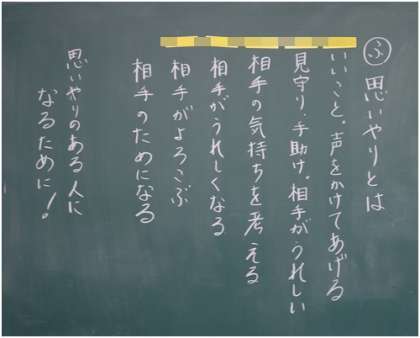 ふ 思いやりとは
いいこと。声をかけてあげる
見守り、手助け。相手がうれしい
相手の気持ちを考える
相手がうれしくなる
相手がよろこぶ
相手のためになる
思いやりのある人に
なるために!